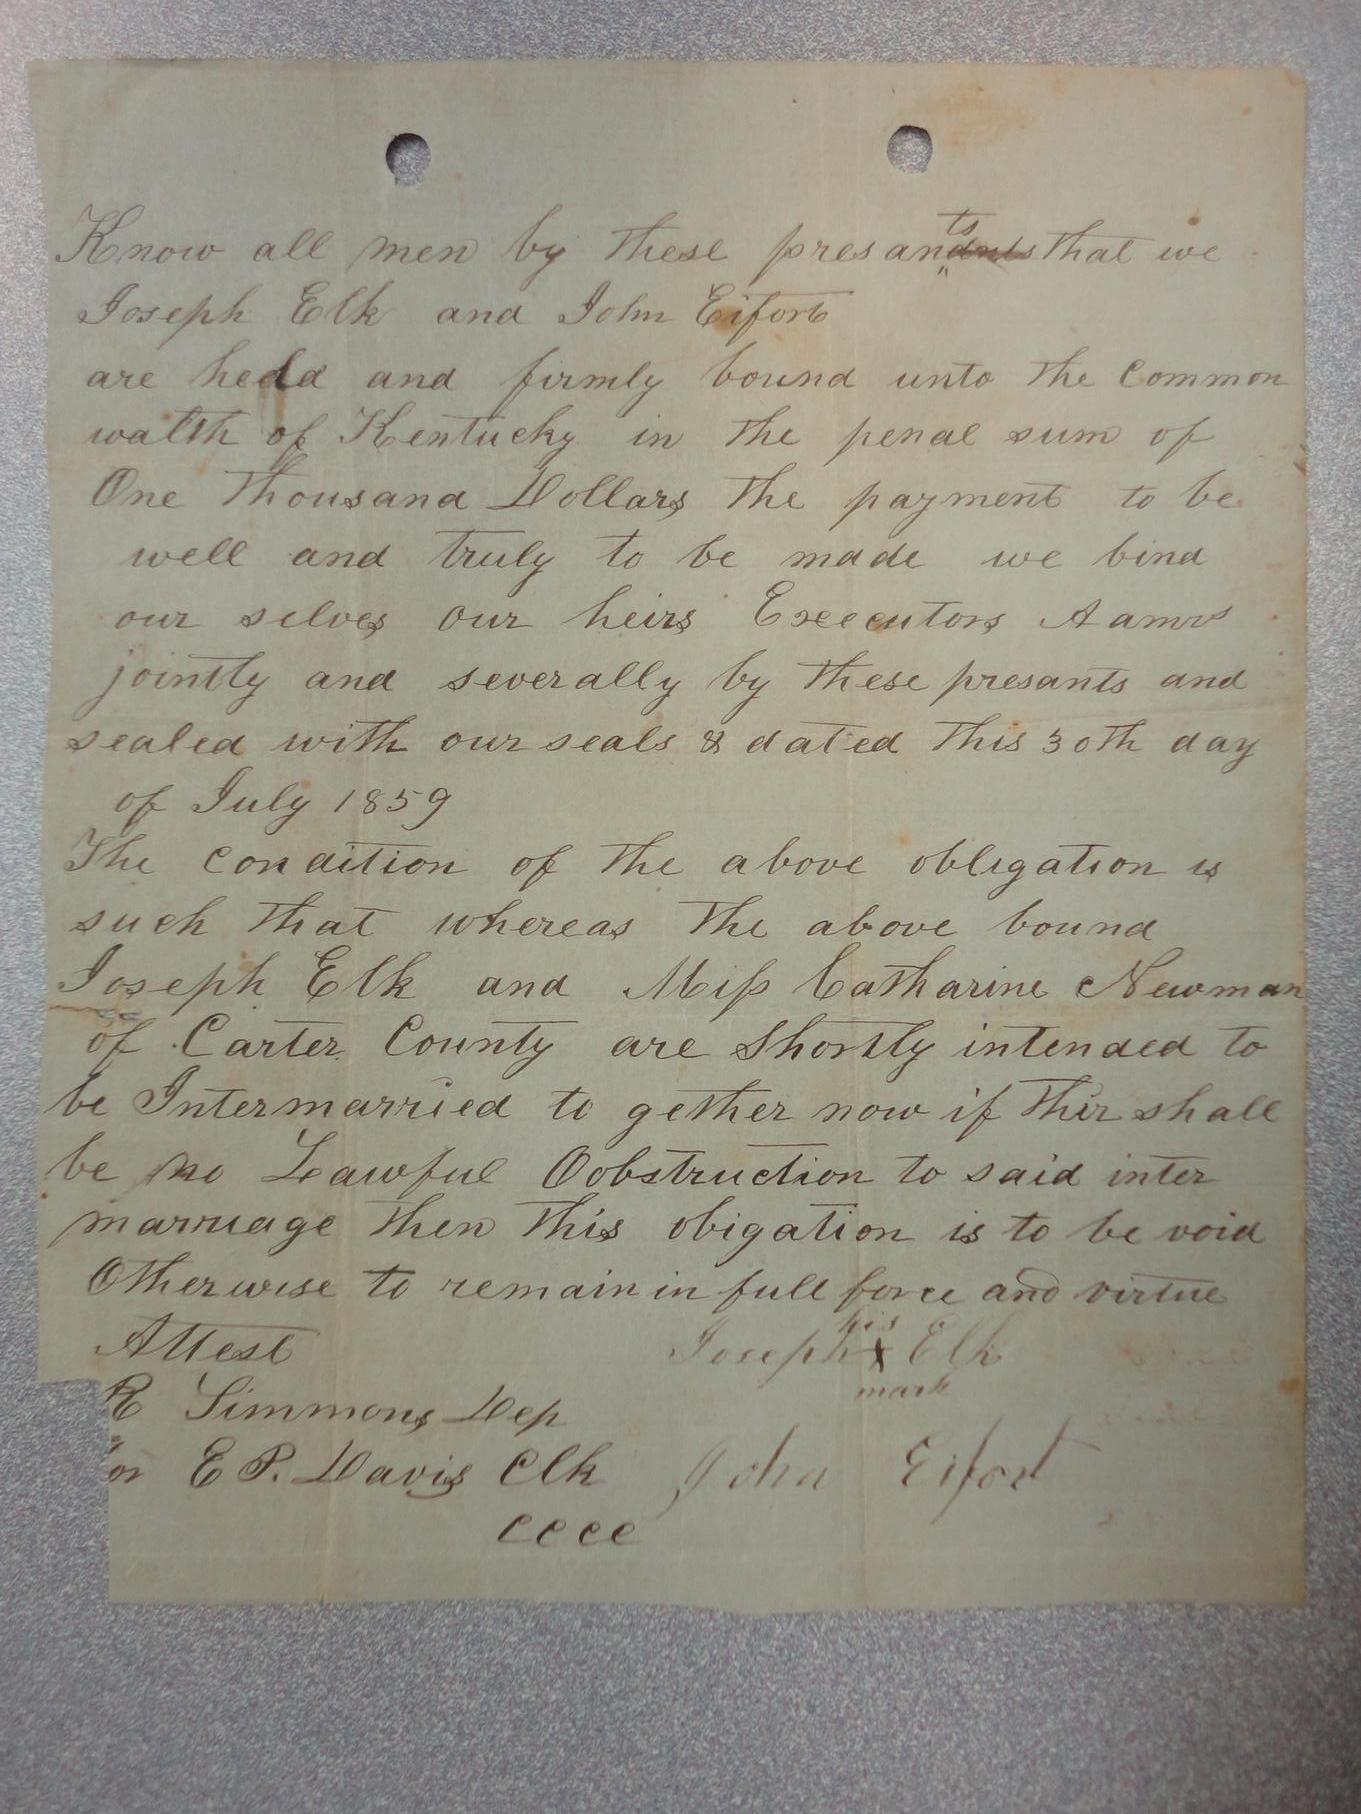 Know all men by these presants that we
Joseph Elk and John Eifort
are held and firmly bound unto the Common
walth of Kentucky in the penal sum of
One Thousand Dollars the payment to be
well and truly to be made we bind
our selves our heirs Executors Admrs
jointly and severally by these presants and
sealed with our seals & dated this 30th day
of July 1859
The condition of the above obligation is
such that whereas the above bound
Joseph Elk and Miss Catharine Newman
of Carter County are shortly intended to
be Intermarried to gether now if thir shall
be no Lawful Oobstruction to said inter
marriage then this obigation is to be void
Otherwise to remain in full force and virtue
Attest Joseph his X mark Elk
R Simmons Dep
for E P. Davis Clk John Eifort
CCCC